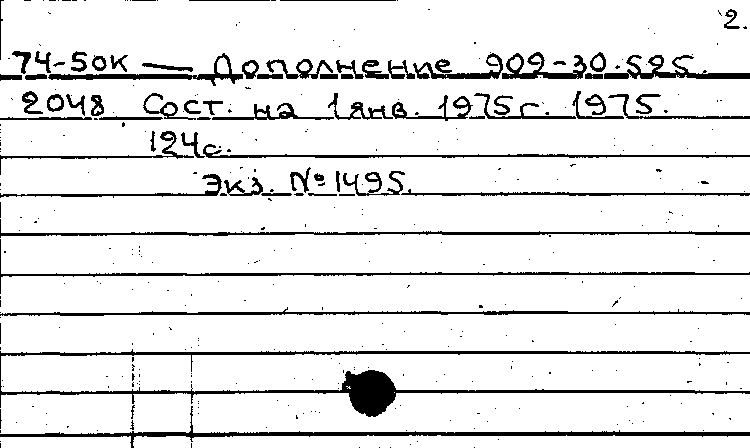 2.
74-50К — Дополнение 909-30.525.
2048 Сост. на 1 янв. 1975г. 1975.
124с.
Экз. №1495.